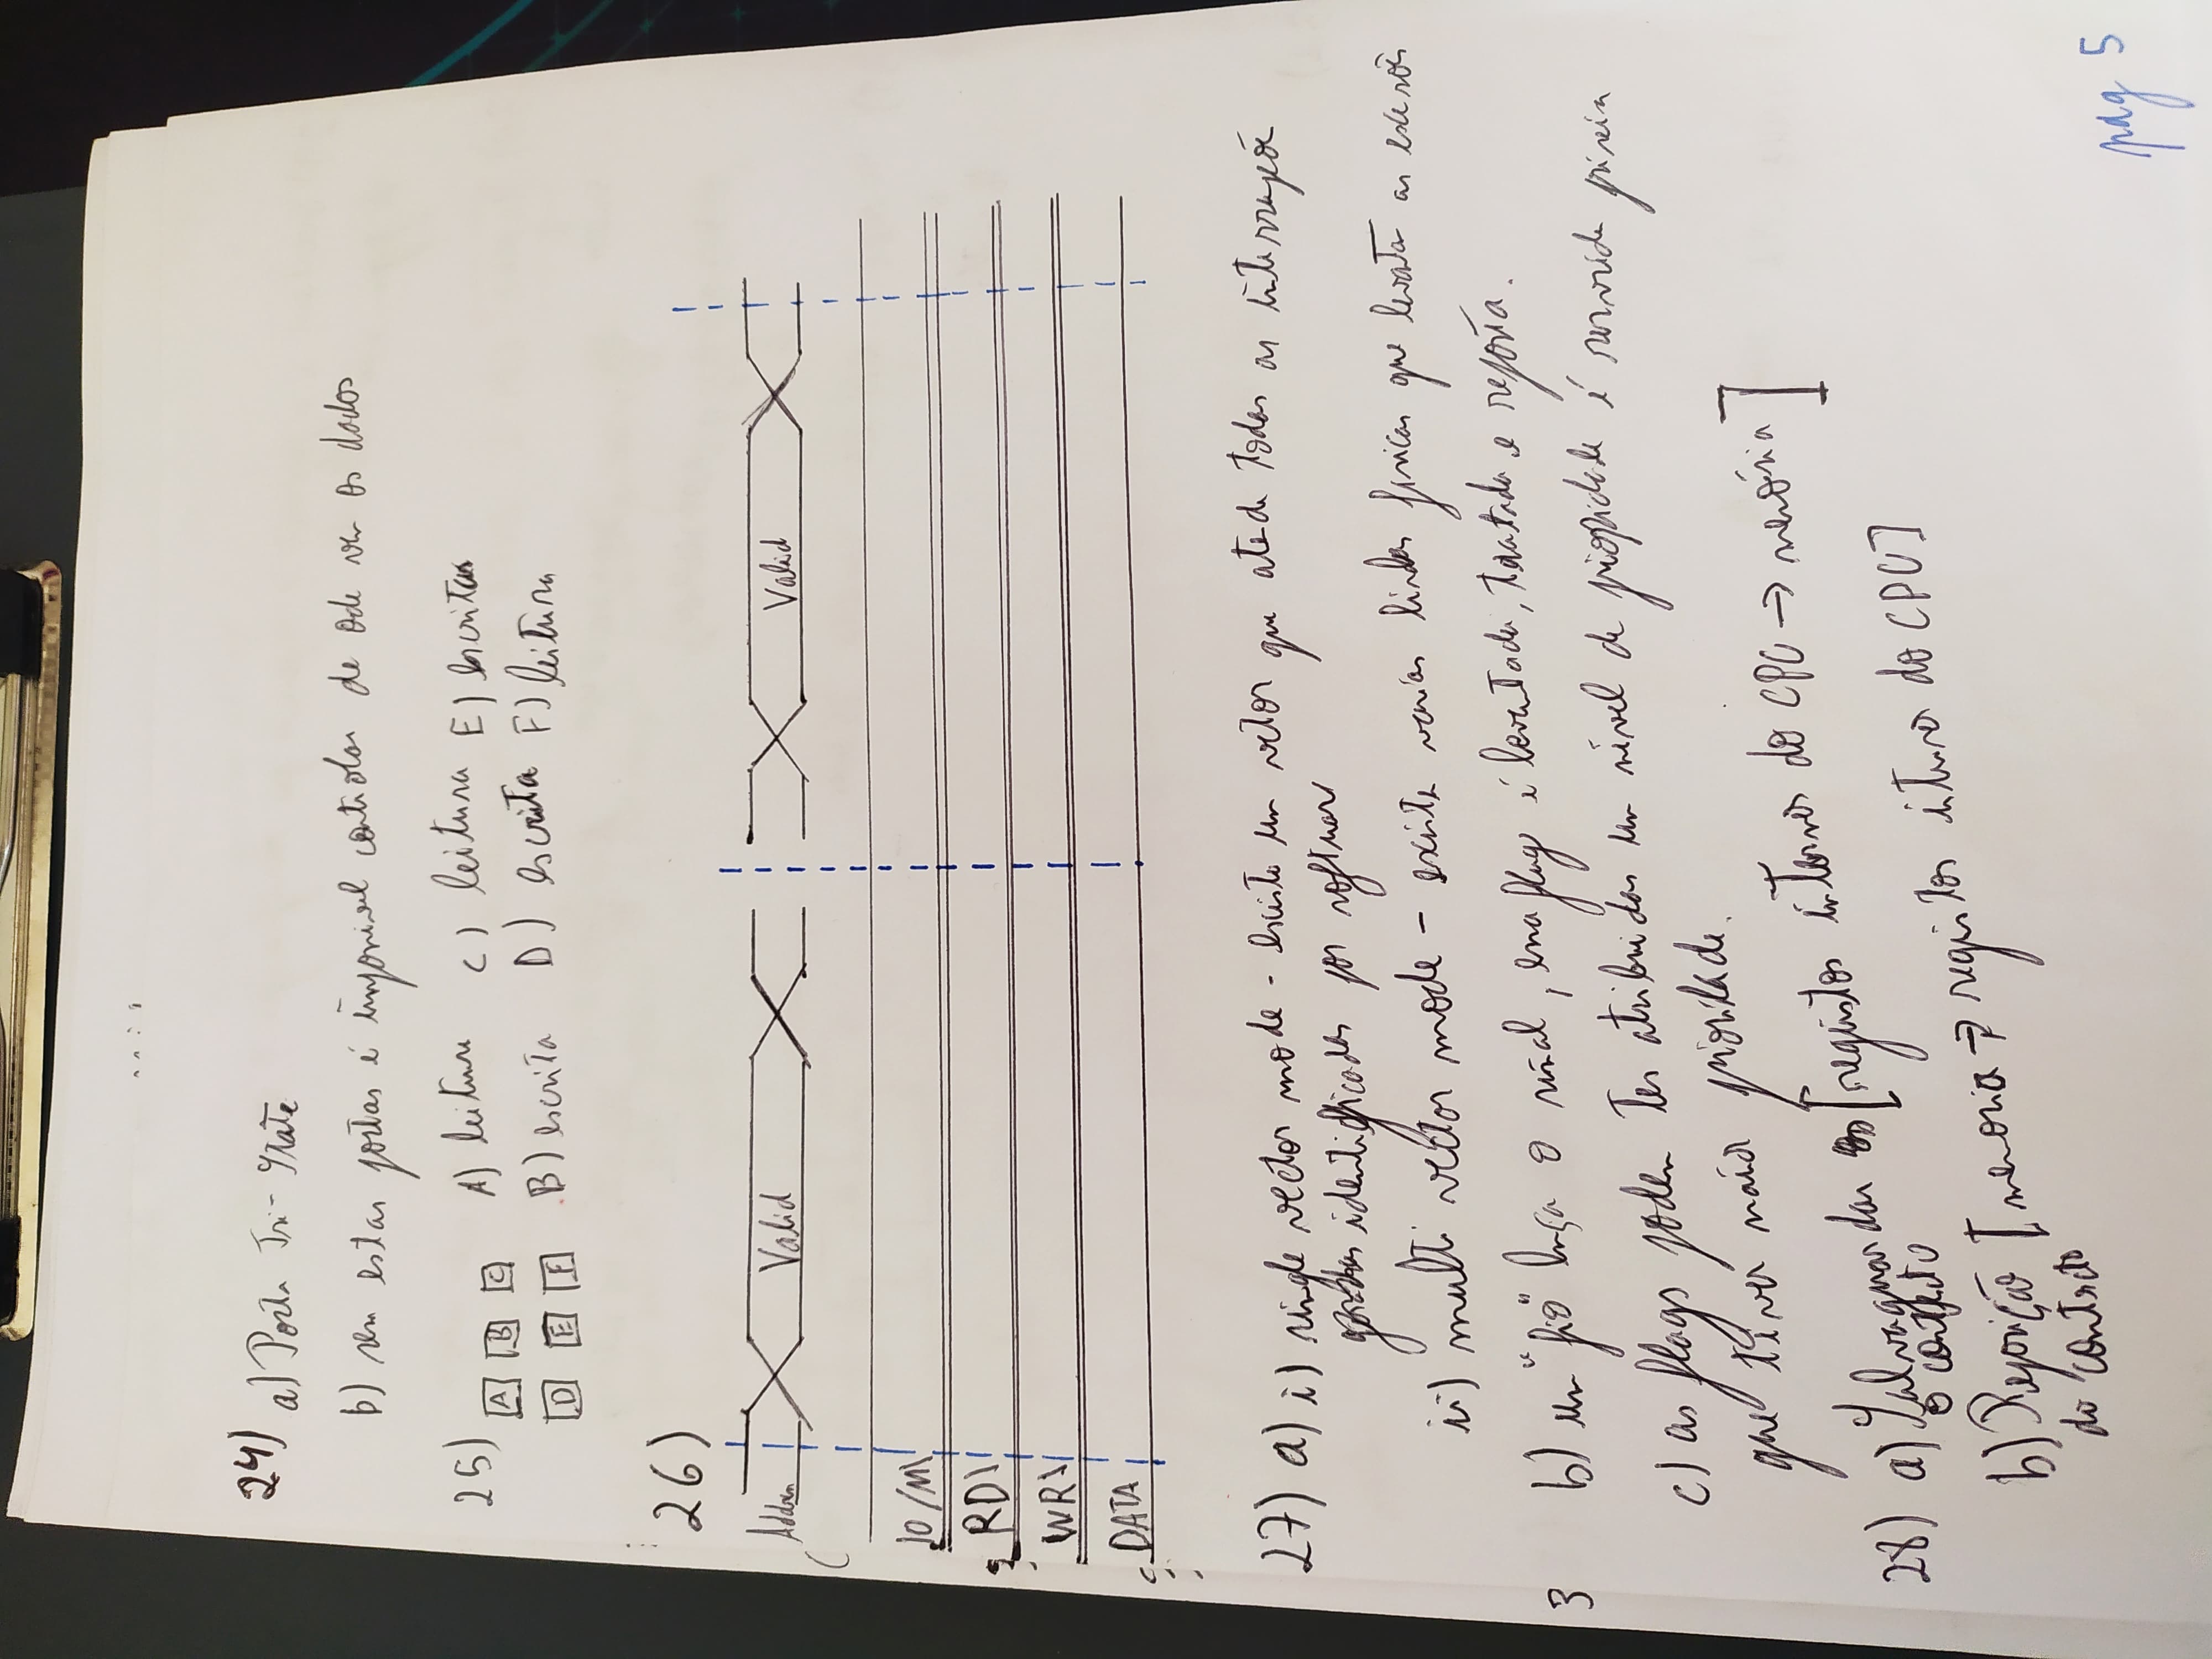 24) a) Porta Tri-State
b) sem estas portas é impossivel controlar de ode vem os dados
25) A) leitura C) leitura E) escritas
A B C
B) escrita D) escrita F) leitura
D E F
26)
Valid Valid
Address
IO/M\
RD\
WR\
DATA
27) a) i) single vector mode - existe um vetor que atende todas as interrupçõe
geradas identificadas por software
ii) multi vector mode - existe varias linhas fisicas que levanta as exceções
b) um "fio" lança o sinal, essa flag é levantada, tratada e reposta.
3
c) as flags podem ter atribuidas um nivel de prioridade é servida
que tiver maior prioridade.
28) a) Salvaguardar os [registos internos do CPU → memória]
o contexto
b) Reposição [memoria → registos internos do CPU]
do contexto
pag 5